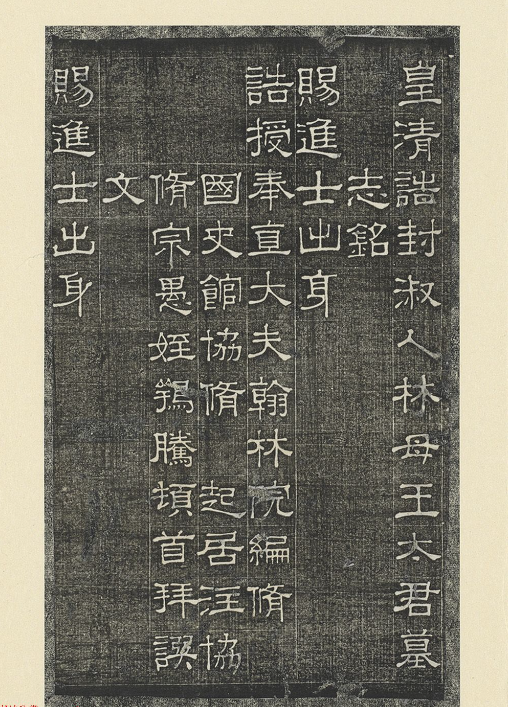 皇清誥封淑人林母王太君墓
志銘
賜進士出身
誥授奉直大夫翰林院編脩
國史館協脩 起居注協
脩宗愚姪鴻騰頓首拜譔
文
賜進士出身